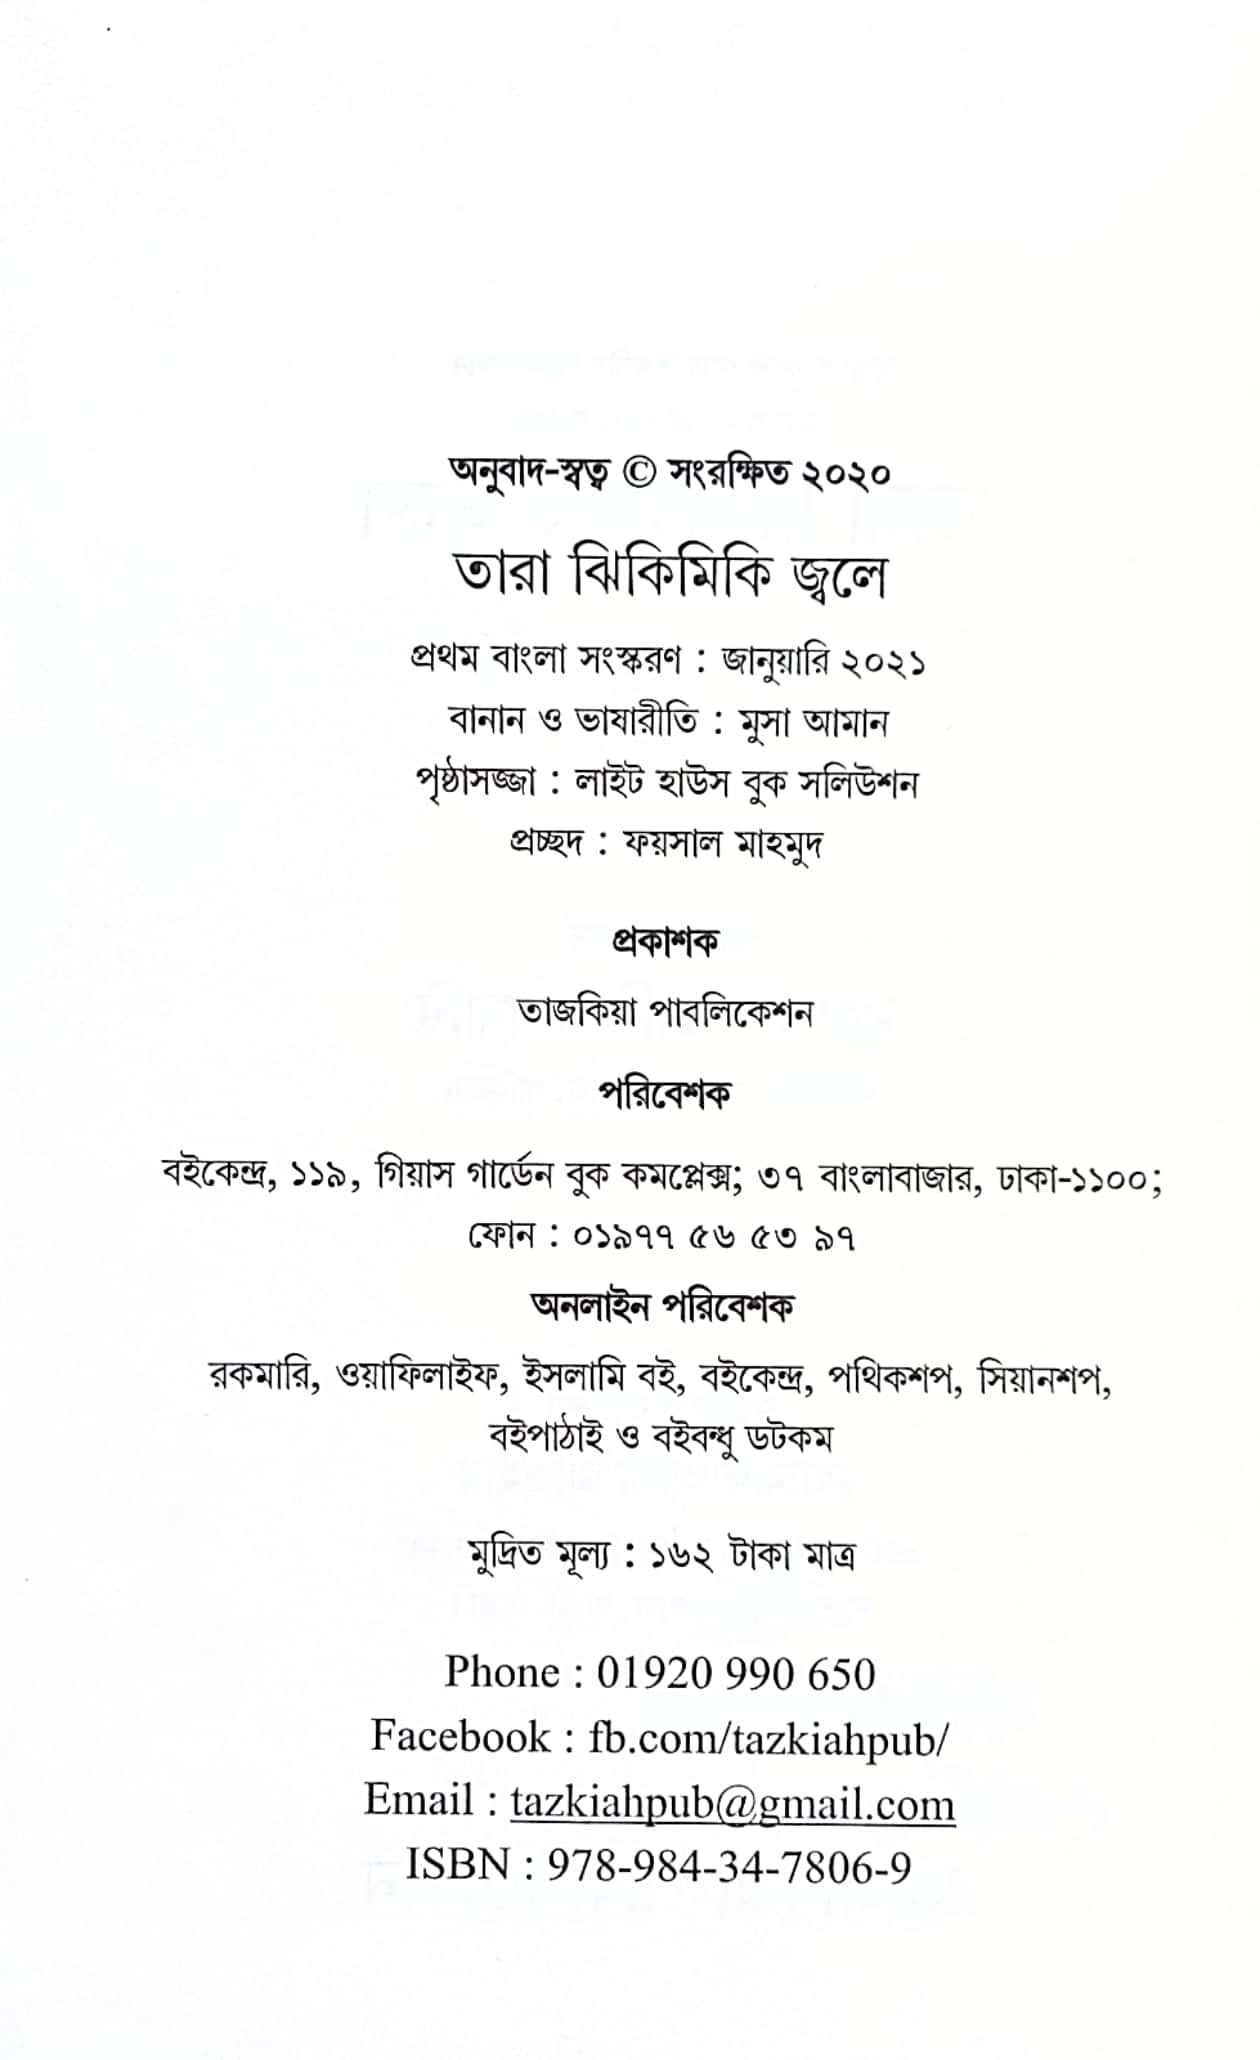 অনুবাদ-স্বত্ব © সংরক্ষিত ২০২০
তারা ঝিকিমিকি জ্বলে
প্রথম বাংলা সংস্করণ : জানুয়ারি ২০২১
বানান ও ভাষারীতি : মুসা আমান
পৃষ্ঠাসজ্জা : লাইট হাউস বুক সলিউশন
প্রচ্ছদ : ফয়সাল মাহমুদ
প্রকাশক
তাজকিয়া পাবলিকেশন
পরিবেশক
বইকেন্দ্র, ১১৯, গিয়াস গার্ডেন বুক কমপ্লেক্স; ৩৭ বাংলাবাজার, ঢাকা-১১০০;
ফোন : ০১৯৭৭ ৫৬ ৫৩ ৯৭
অনলাইন পরিবেশক
রকমারি, ওয়াফিলাইফ, ইসলামি বই, বইকেন্দ্র, পথিকশপ, সিয়ানশপ,
বইপাঠাই ও বইবন্ধু ডটকম
মুদ্রিত মূল্য : ১৬২ টাকা মাত্র
Phone : 01920 990 650
Facebook : fb.com/tazkiahpub/
Email : tazkiahpub@gmail.com
ISBN : 978-984-34-7806-9